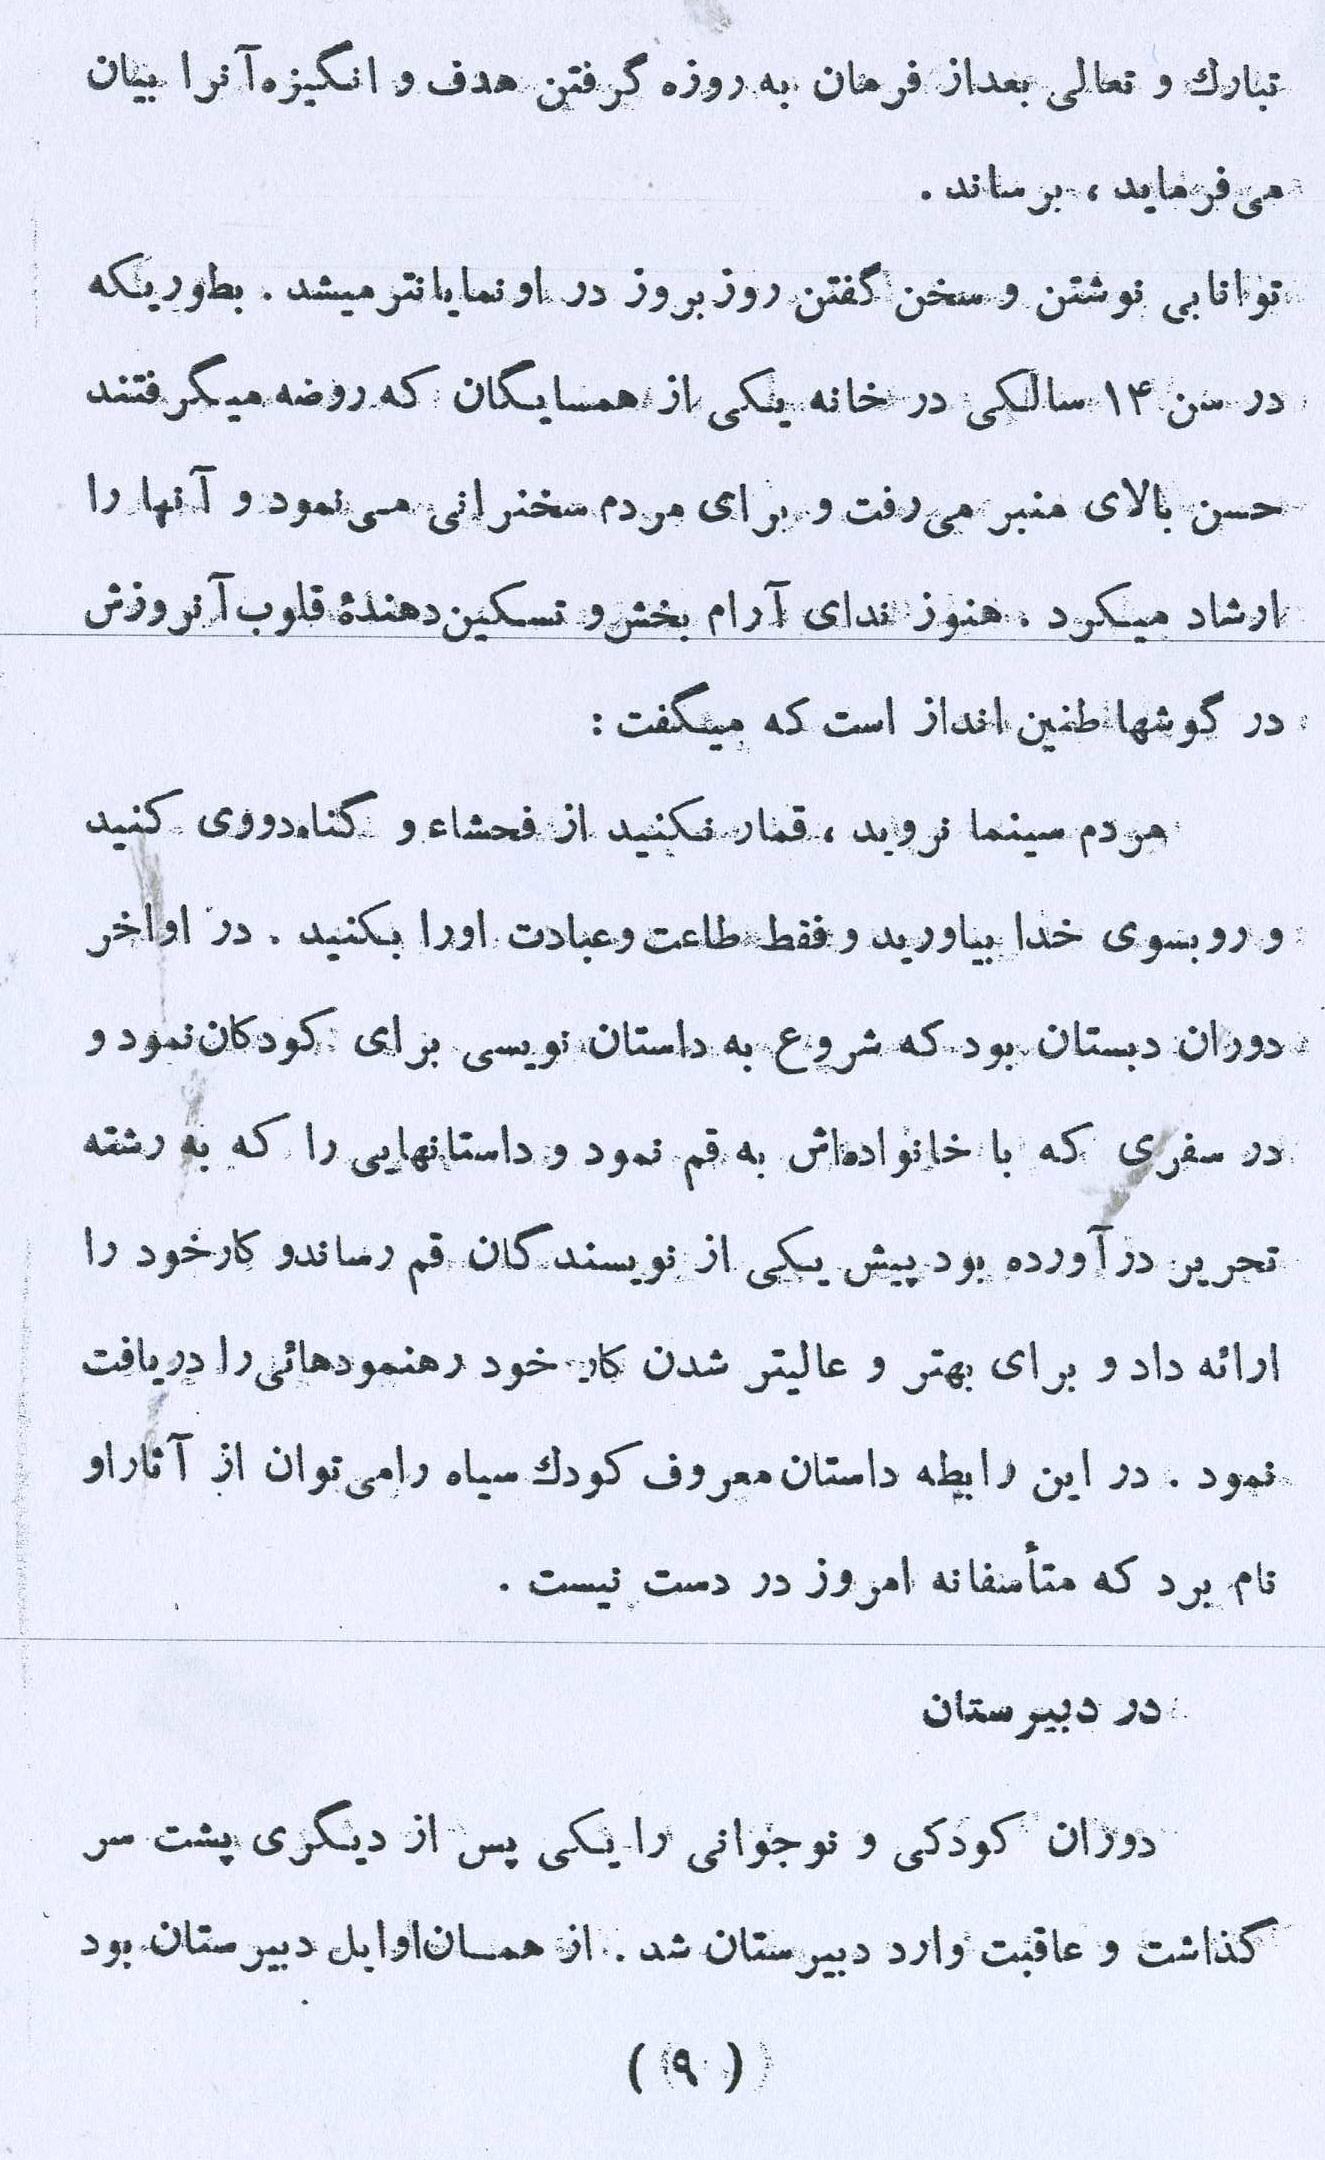 تبارك و تعالی بعداز فرمان به روزه گرفتن هدف و انگیزه‌آنرا بیان
می‌فرماید ، برساند .
توانایی نوشتن و سخن گفتن روزبروز در او نمایانتر میشد . بطوریکه
در سن ۱۴ سالگی در خانه یکی از همسایگان که روضه میگرفتند
حسن بالای منبر می‌رفت و برای مردم سخنرانی می‌نمود و آنها را
ارشاد میکرد . هنوز ندای آرام بخش و تسکین‌دهندهٔ قلوب آنروزش
در گوشها طنین انداز است که میگفت :
مردم سینما نروید ، قمار نکنید از فحشاء و گناه‌دووی کنید
و روبسوی خدا بیاورید و فقط طاعت وعبادت اورا بکنید . در اواخر
دوران دبستان بود که شروع به داستان نویسی برای کودکان‌نمود و
در سفری که با خانواده‌اش به قم نمود و داستانهایی را که به رشته
تحریر درآورده بود پیش یکی از نویسندگان قم رساندو کارخود را
ارائه داد و برای بهتر و عالیتر شدن کار خود رهنمودهائی را دریافت
نمود . در این رابطه داستان معروف کودك سیاه رامی‌توان از آثاراو
نام برد که متأسفانه امروز در دست نیست .
در دبیرستان
دوران کودکی و نوجوانی را یکی پس از دیگری پشت سر
گذاشت و عاقبت وارد دبیرستان شد . از همـان‌اوایل دبیرستان بود
(۹)